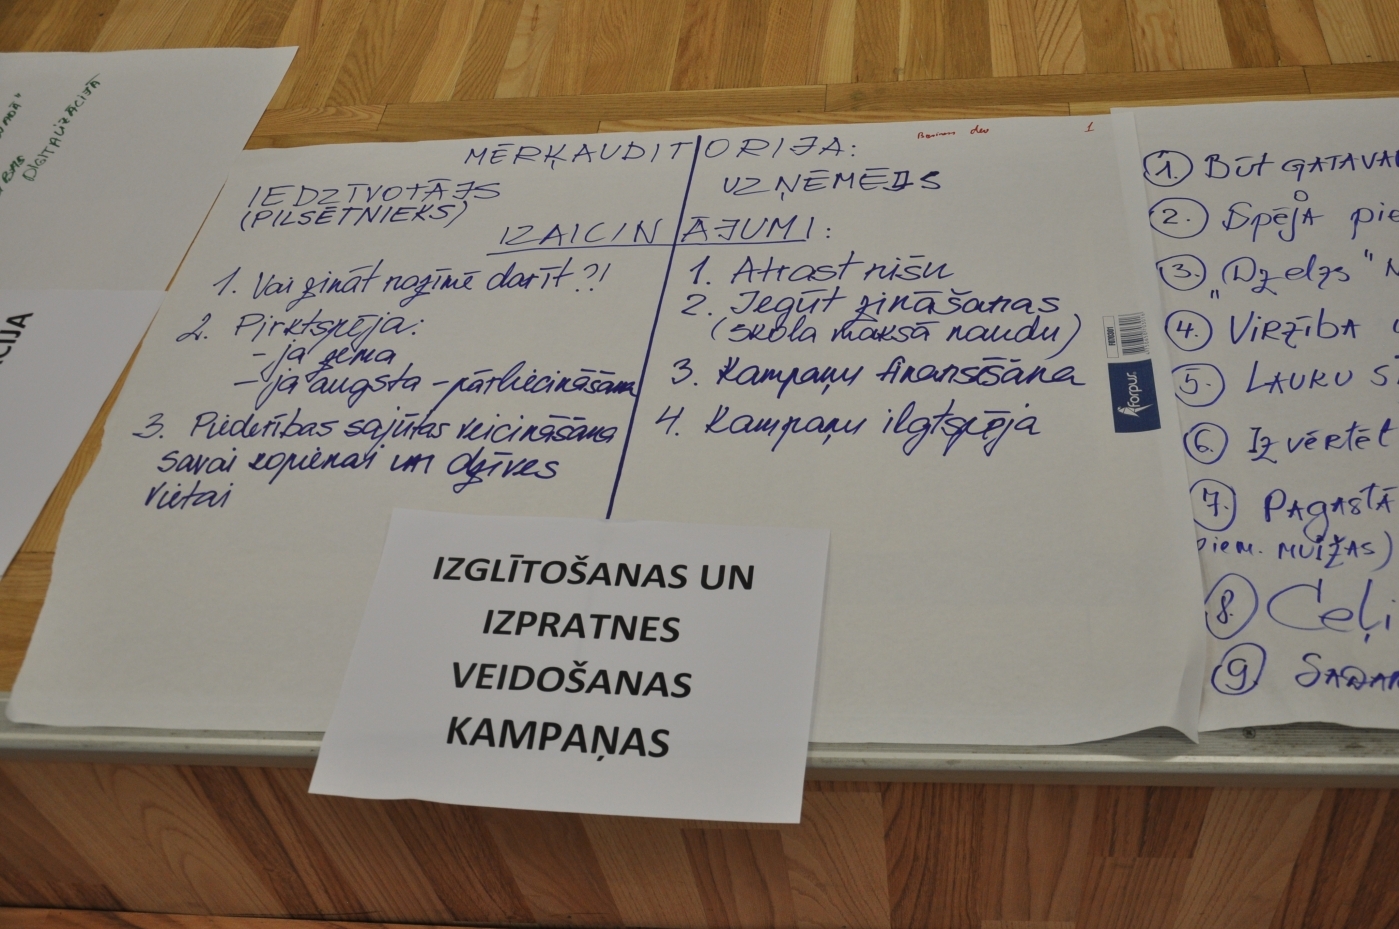 DIGITALIZĀCIJA
CIJA
Business dev 1
MĒRĶAUDITORIJA:
IEDZĪVOTĀJS
(PILSĒTNIEKS)
UZŅĒMĒJS
IZAICINĀJUMI:
1. Vai zināt nozīmē darīt?!
2. Pirktspēja:
- ja zema
- ja augsta - pārliecināšana
3. Piederības sajūtas veicināšana
savai kopienai un dzīves
vietai
1. Atrast nišu
2. Iegūt zināšanas
(skola maksā naudu)
3. Kampaņu finansēšana
4. Kampaņu ilgtspēja
forpus
IZGLĪTOŠANAS UN
IZPRATNES
VEIDOŠANAS
KAMPAŅAS
1. BŪT GATAVA
2. Spēja pie
3. "Dzelzs" N
4. VIRZĪBA
5. LAUKU
6. IZVĒRTĒT
7. PAGASTĀ
piem. MUIŽAS)
8. Ceļi
9. SADAR